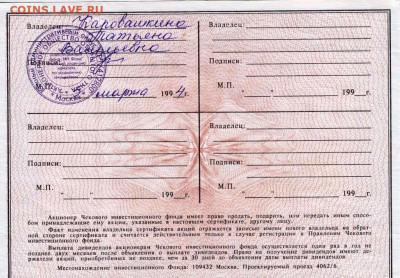 COINS.LAVE.RU
Владелец: Каровашкина
Татьяна
Васильевна
Подписи:
М.П. "3" марта 1994г.
Владелец:
Подписи:
М.П. " " 199 г.
Владелец:
Подписи:
М.П. " " 199 г.
Владелец:
Подписи:
М.П. " " 199 г.
Акционер Чекового инвестиционного фонда имеет право продать, подарить, или передать иным способом принадлежащие ему акции, указанные в настоящем сертификате, другому лицу.
Факт изменения владельца сертификата акций отражается записью имени нового владельца на оборотной стороне сертификата и считается действительным только в случае регистрации в Правлении Чекового инвестиционного фонда.
Выплата дивидендов акционерам Чекового инвестиционного фонда осуществляется один раз в год не позднее двух месяцев после объявления о выплате дивидендов. Право на получение дивидендов имеют владельцы акций, приобретенных не позднее, чем за 30 дней до объявления даты выплаты дивидендов.
Местонахождение инвестиционного Фонда: 109432 Москва, Проектируемый проезд 4062/6